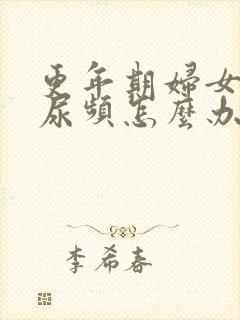 更年期婦女
尿頻怎麼办
李希春